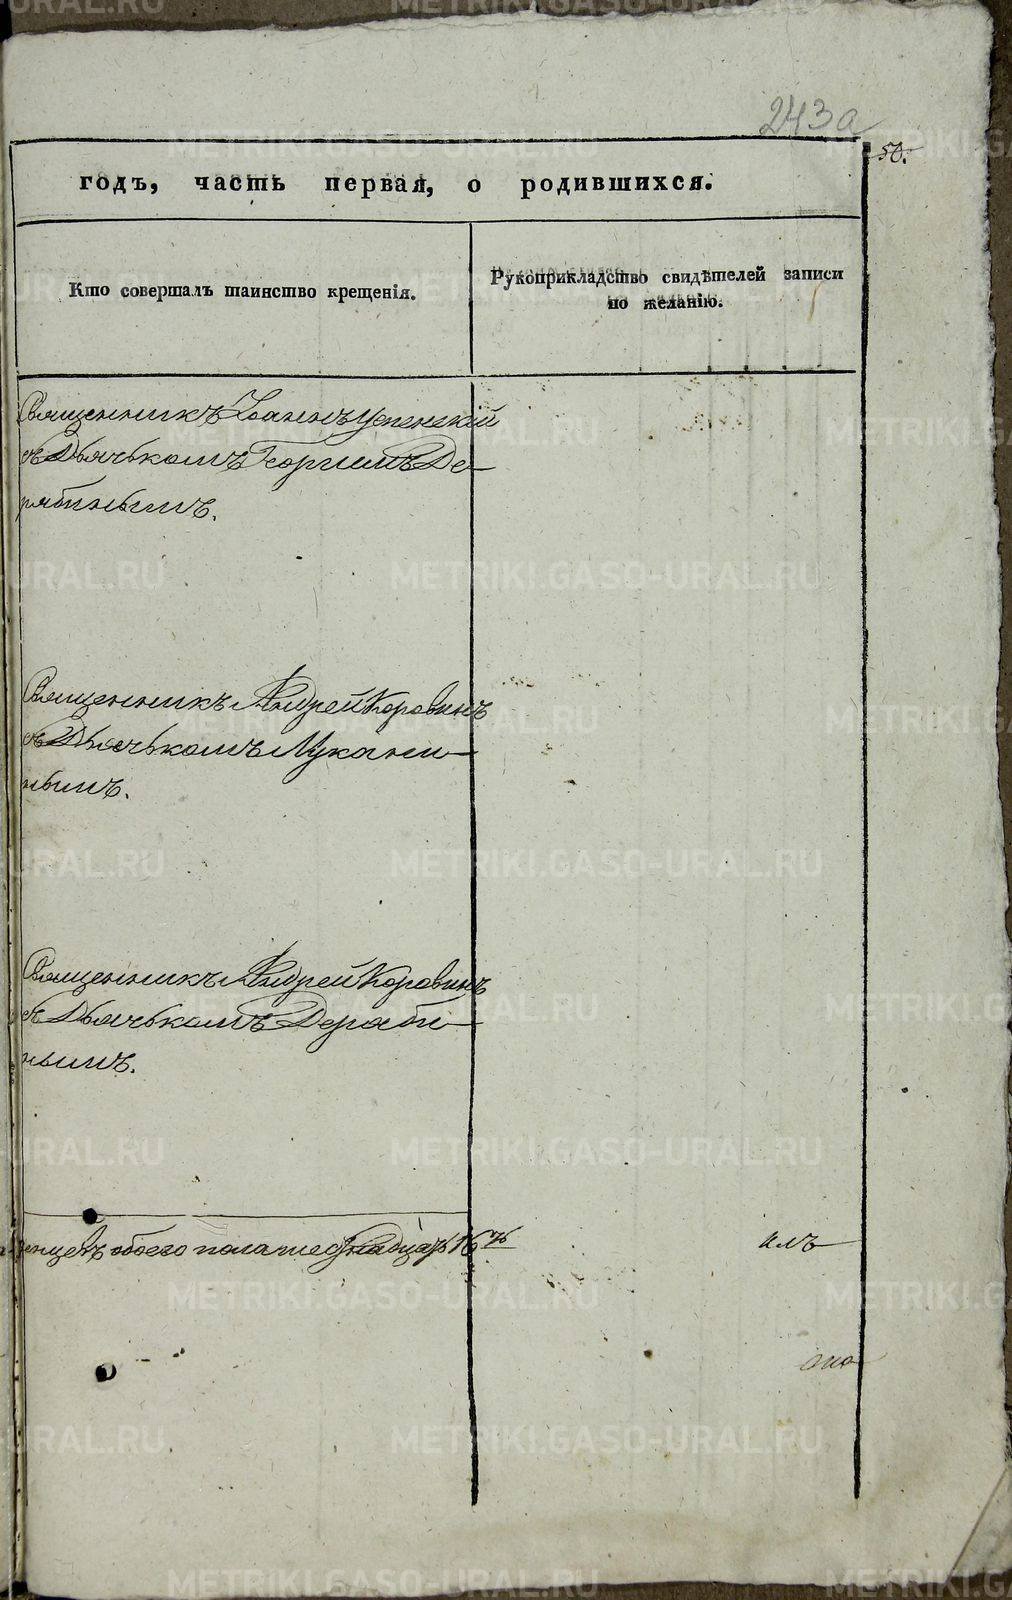 243а
50.
годъ, часть первая, о родившихся.
Кто совершалъ таинство крещенія.
Рукоприкладство свидѣтелей записи
по желанію.
Священникъ Іоаннъ Успенскій
съ Дьячькомъ Георгіемъ Де-
рябинымъ.
Священникъ Андрей Коровинъ
съ Дьячькомъ Лукани-
нымъ.
Священникъ Андрей Коровинъ
съ Дьячькомъ Деряби-
нымъ.
обоего пола шестнадцать 16
METRIKI.GASO-URAL.RU